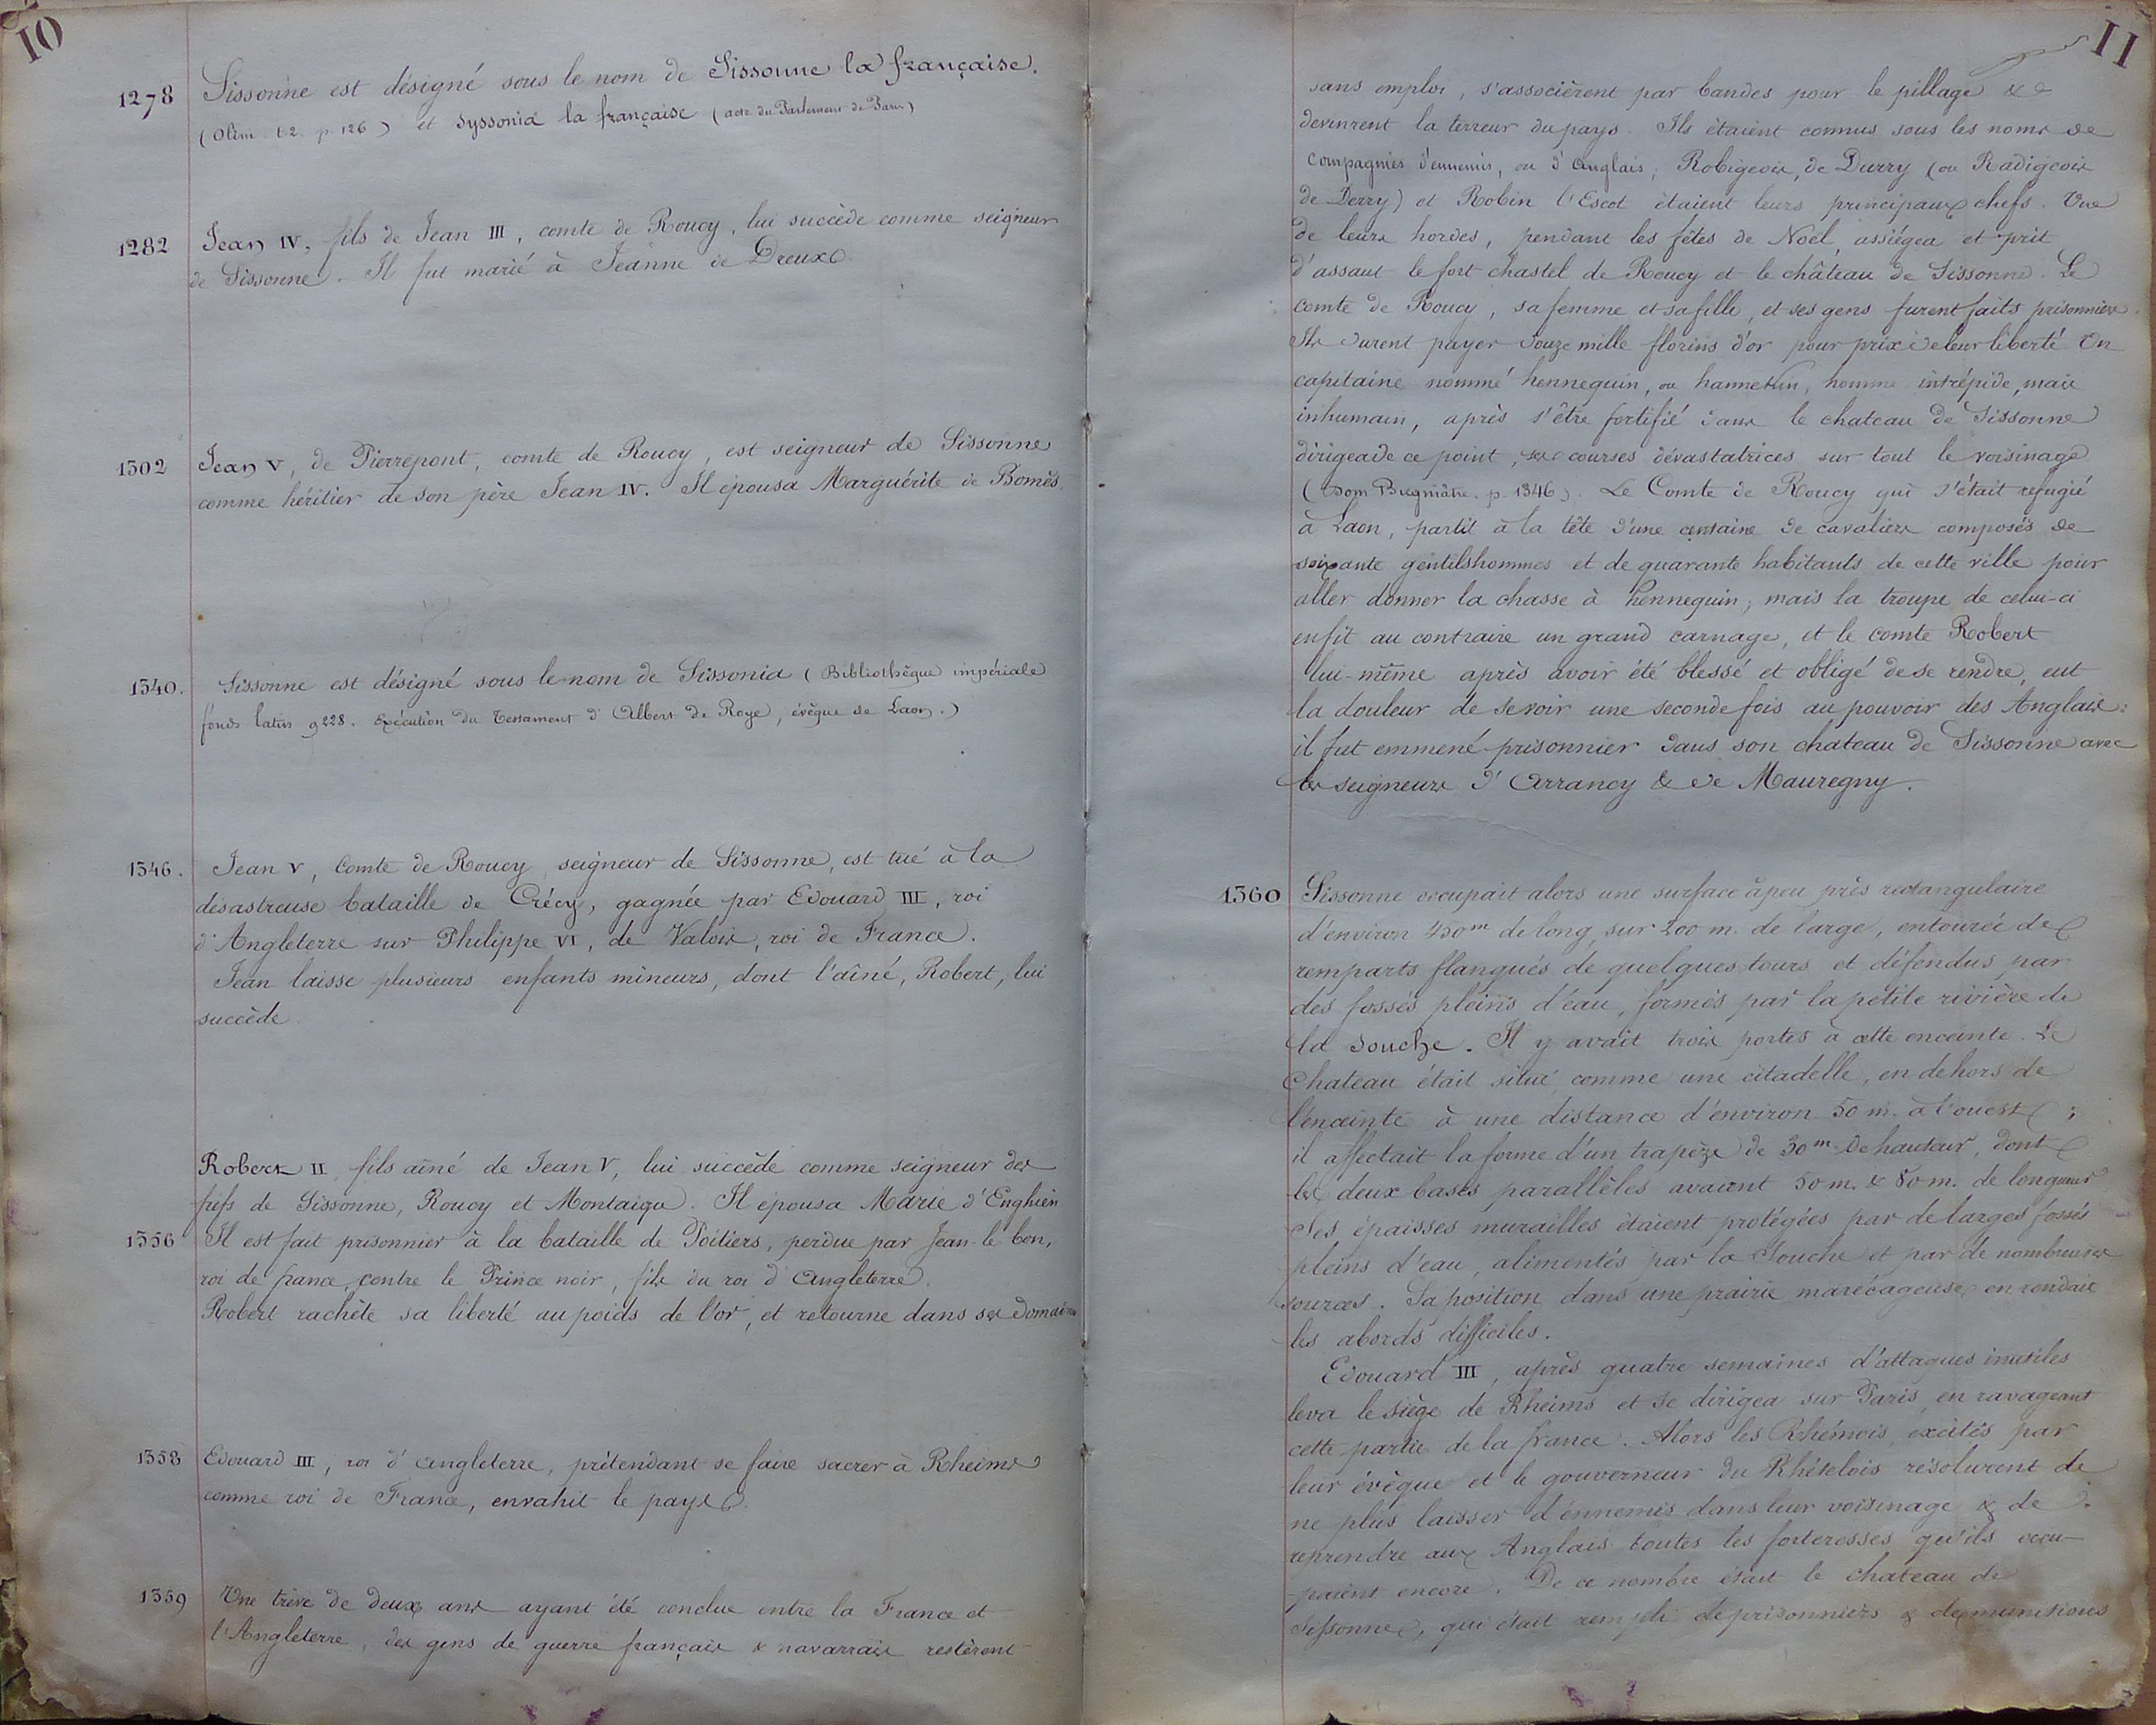 10
1278 Sissonne est désigné sous le nom de Sissonne la française.
(Olim t.2. p. 126) et Syssonia la française (acte du Parlement de Paris)
1282 Jean IV, fils de Jean III, comte de Roucy, lui succède comme seigneur
de Sissonne. Il fut marié à Jeanne de Dreux.
1302 Jean V, de Pierrepont, comte de Roucy, est seigneur de Sissonne
comme héritier de son père Jean IV. Il épousa Marguérite de Bomès.
1340. Sissonne est désigné sous le nom de Sissonia (Bibliothèque impériale
fonds latin 9228. Exécution du Testament d'Albert de Roye, évêque de Laon.)
1346. Jean V, Comte de Roucy, seigneur de Sissonne, est tué à la
désastreuse bataille de Crécy, gagnée par Edouard III, roi
d'Angleterre sur Philippe VI, de Valois, roi de France.
Jean laisse plusieurs enfants mineurs, dont l'aîné, Robert, lui
succède.
Robert II, fils aîné de Jean V, lui succède comme seigneur des
fiefs de Sissonne, Roucy et Montaigu. Il épousa Marie d'Enghien
1356 Il est fait prisonnier à la bataille de Poitiers, perdue par Jean-le-bon,
roi de france, contre le Prince noir, fils du roi d'Angleterre.
Robert rachète sa liberté au poids de l'or, et retourne dans ses domaines
1358 Edouard III, roi d'Angleterre, prétendant se faire sacrer à Rheims
comme roi de France, envahit le pays.
1359 Une trève de deux ans ayant été conclue entre la France et
l'Angleterre, des gens de guerre français & navarrais restèrent
11
sans emploi, s'associèrent par bandes pour le pillage &
devinrent la terreur du pays. Ils étaient connus sous les noms de
Compagnies d'ennemis, ou d'Anglais; Robigeois, de Durry (ou Radigois
de Derry) et Robin l'Escot étaient leurs principaux chefs. Une
de leurs hordes, pendant les fêtes de Noël, assiégea et prit
d'assaut le fort chastel de Roucy et le château de Sissonne. Le
comte de Roucy, sa femme et sa fille, et ses gens furent faits prisonniers.
Ils durent payer douze mille florins d'or pour prix de leur liberté. Un
capitaine nommé hennequin, ou hannekin, homme intrépide, mais
inhumain, après s'être fortifié dans le chateau de Sissonne
dirigea de ce point, ses courses dévastatrices sur tout le voisinage
(Dom Bugniâtre. p. 1346). Le Comte de Roucy qui s'était refugié
à Laon, partit à la tête d'une centaine de cavaliers composés de
soixante gentilshommes et de quarante habitants de cette ville pour
aller donner la chasse à hennequin; mais la troupe de celui-ci
en fit au contraire un grand carnage, et le comte Robert
lui-même après avoir été blessé et obligé de se rendre, eut
la douleur de se voir une seconde fois au pouvoir des Anglais:
il fut emmené prisonnier dans son chateau de Sissonne avec
les seigneurs d'Arrancy & de Mauregny.
1360 Sissonne occupait alors une surface à peu près rectangulaire
d'environ 450m de long, sur 200 m. de large, entourée de
remparts flanqués de quelques tours et défendus par
des fossés pleins d'eau, formés par la petite rivière de
la Souche. Il y avait trois portes à cette enceinte. Le
Chateau était situé, comme une citadelle, en dehors de
l'enceinte à une distance d'environ 50 m. à l'ouest;
il affectait la forme d'un trapèze de 30m de hauteur, dont
les deux bases parallèles avaient 50 m. & 80 m. de longueur
Ses épaisses murailles étaient protégées par de larges fossés
pleins d'eau, alimentés par la Souche et par de nombreuses
sources. Sa position dans une prairie marécageuse en rendait
les abords difficiles.
Edouard III, après quatre semaines d'attaques inutiles
leva le siège de Rheims et se dirigea sur Paris, en ravageant
cette partie de la france. Alors les Rhémois, excités par
leur évêque et le gouverneur du Rhételois résolurent de
ne plus laisser d'ennemis dans leur voisinage & de
reprendre aux Anglais toutes les forteresses qu'ils occu-
paient encore. De ce nombre était le chateau de
Sissonne, qui était rempli de prisonniers & de munitions